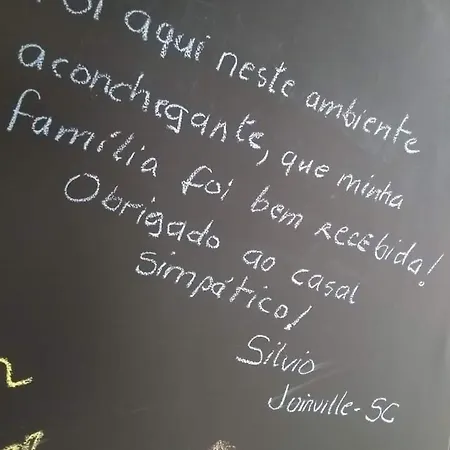 Foi aqui neste ambiente
aconchegante, que minha
família foi bem RECEbida!
Obrigado ao casal
simpático!
Silvio
Joinville-SC